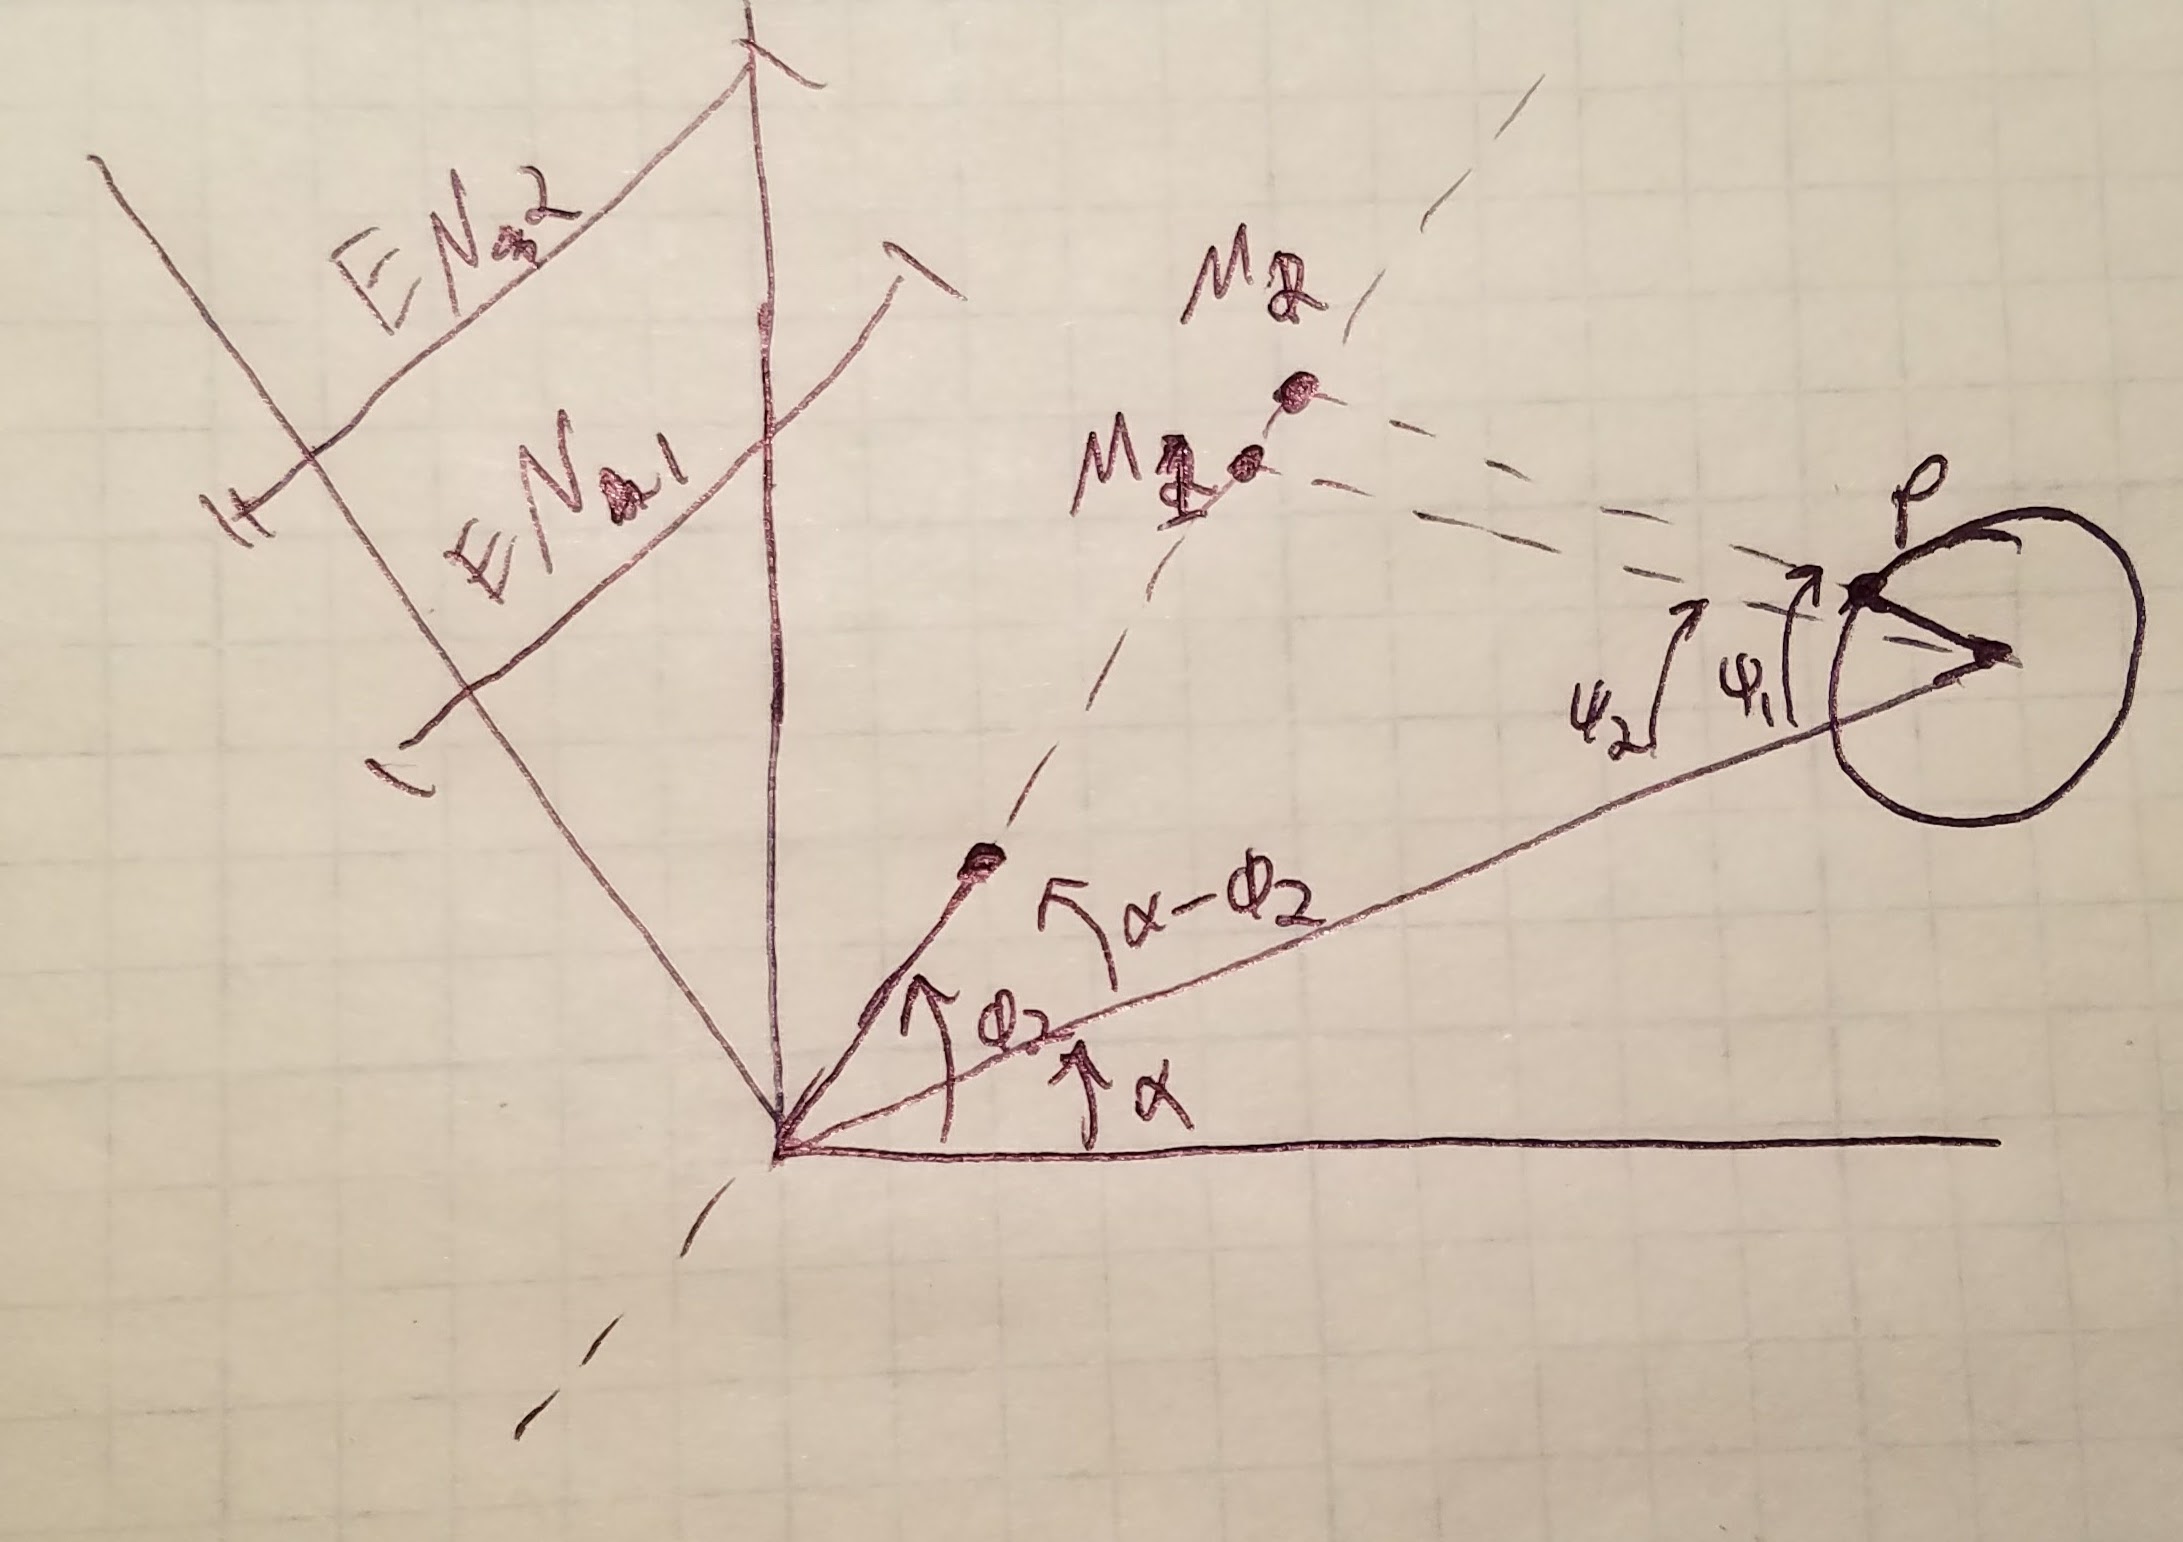 EN2
EN1
M2
M1
P
ψ2
φ1
α-φ2
φ2
α